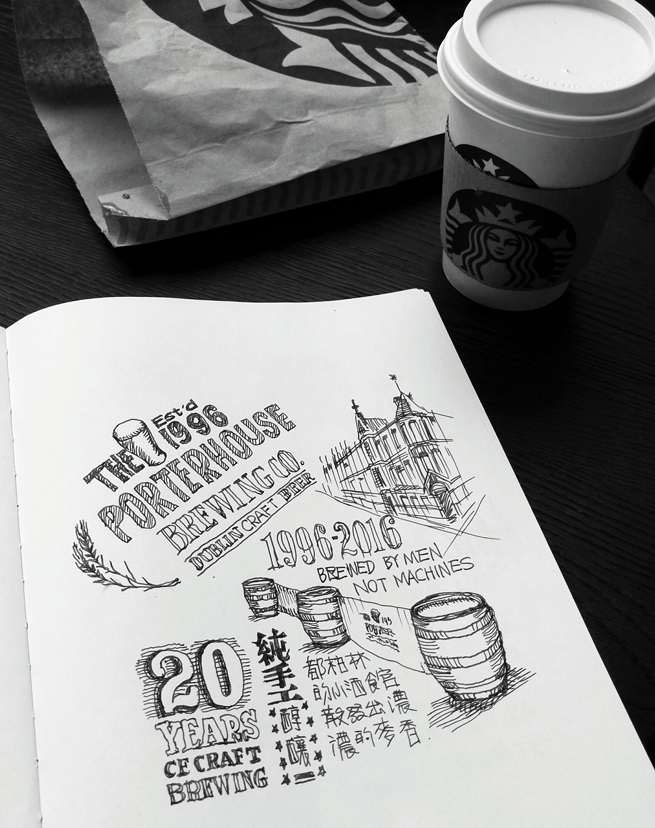 Est'd
THE 1996
PORTERHOUSE
BREWING CO.
DUBLIN CRAFT BEER
1996-2016
BREWED BY MEN
NOT MACHINES
20
YEARS
OF CRAFT
BREWING
純手工
醇釀
都柏林
的小酒館
散發出濃
濃的麥香.